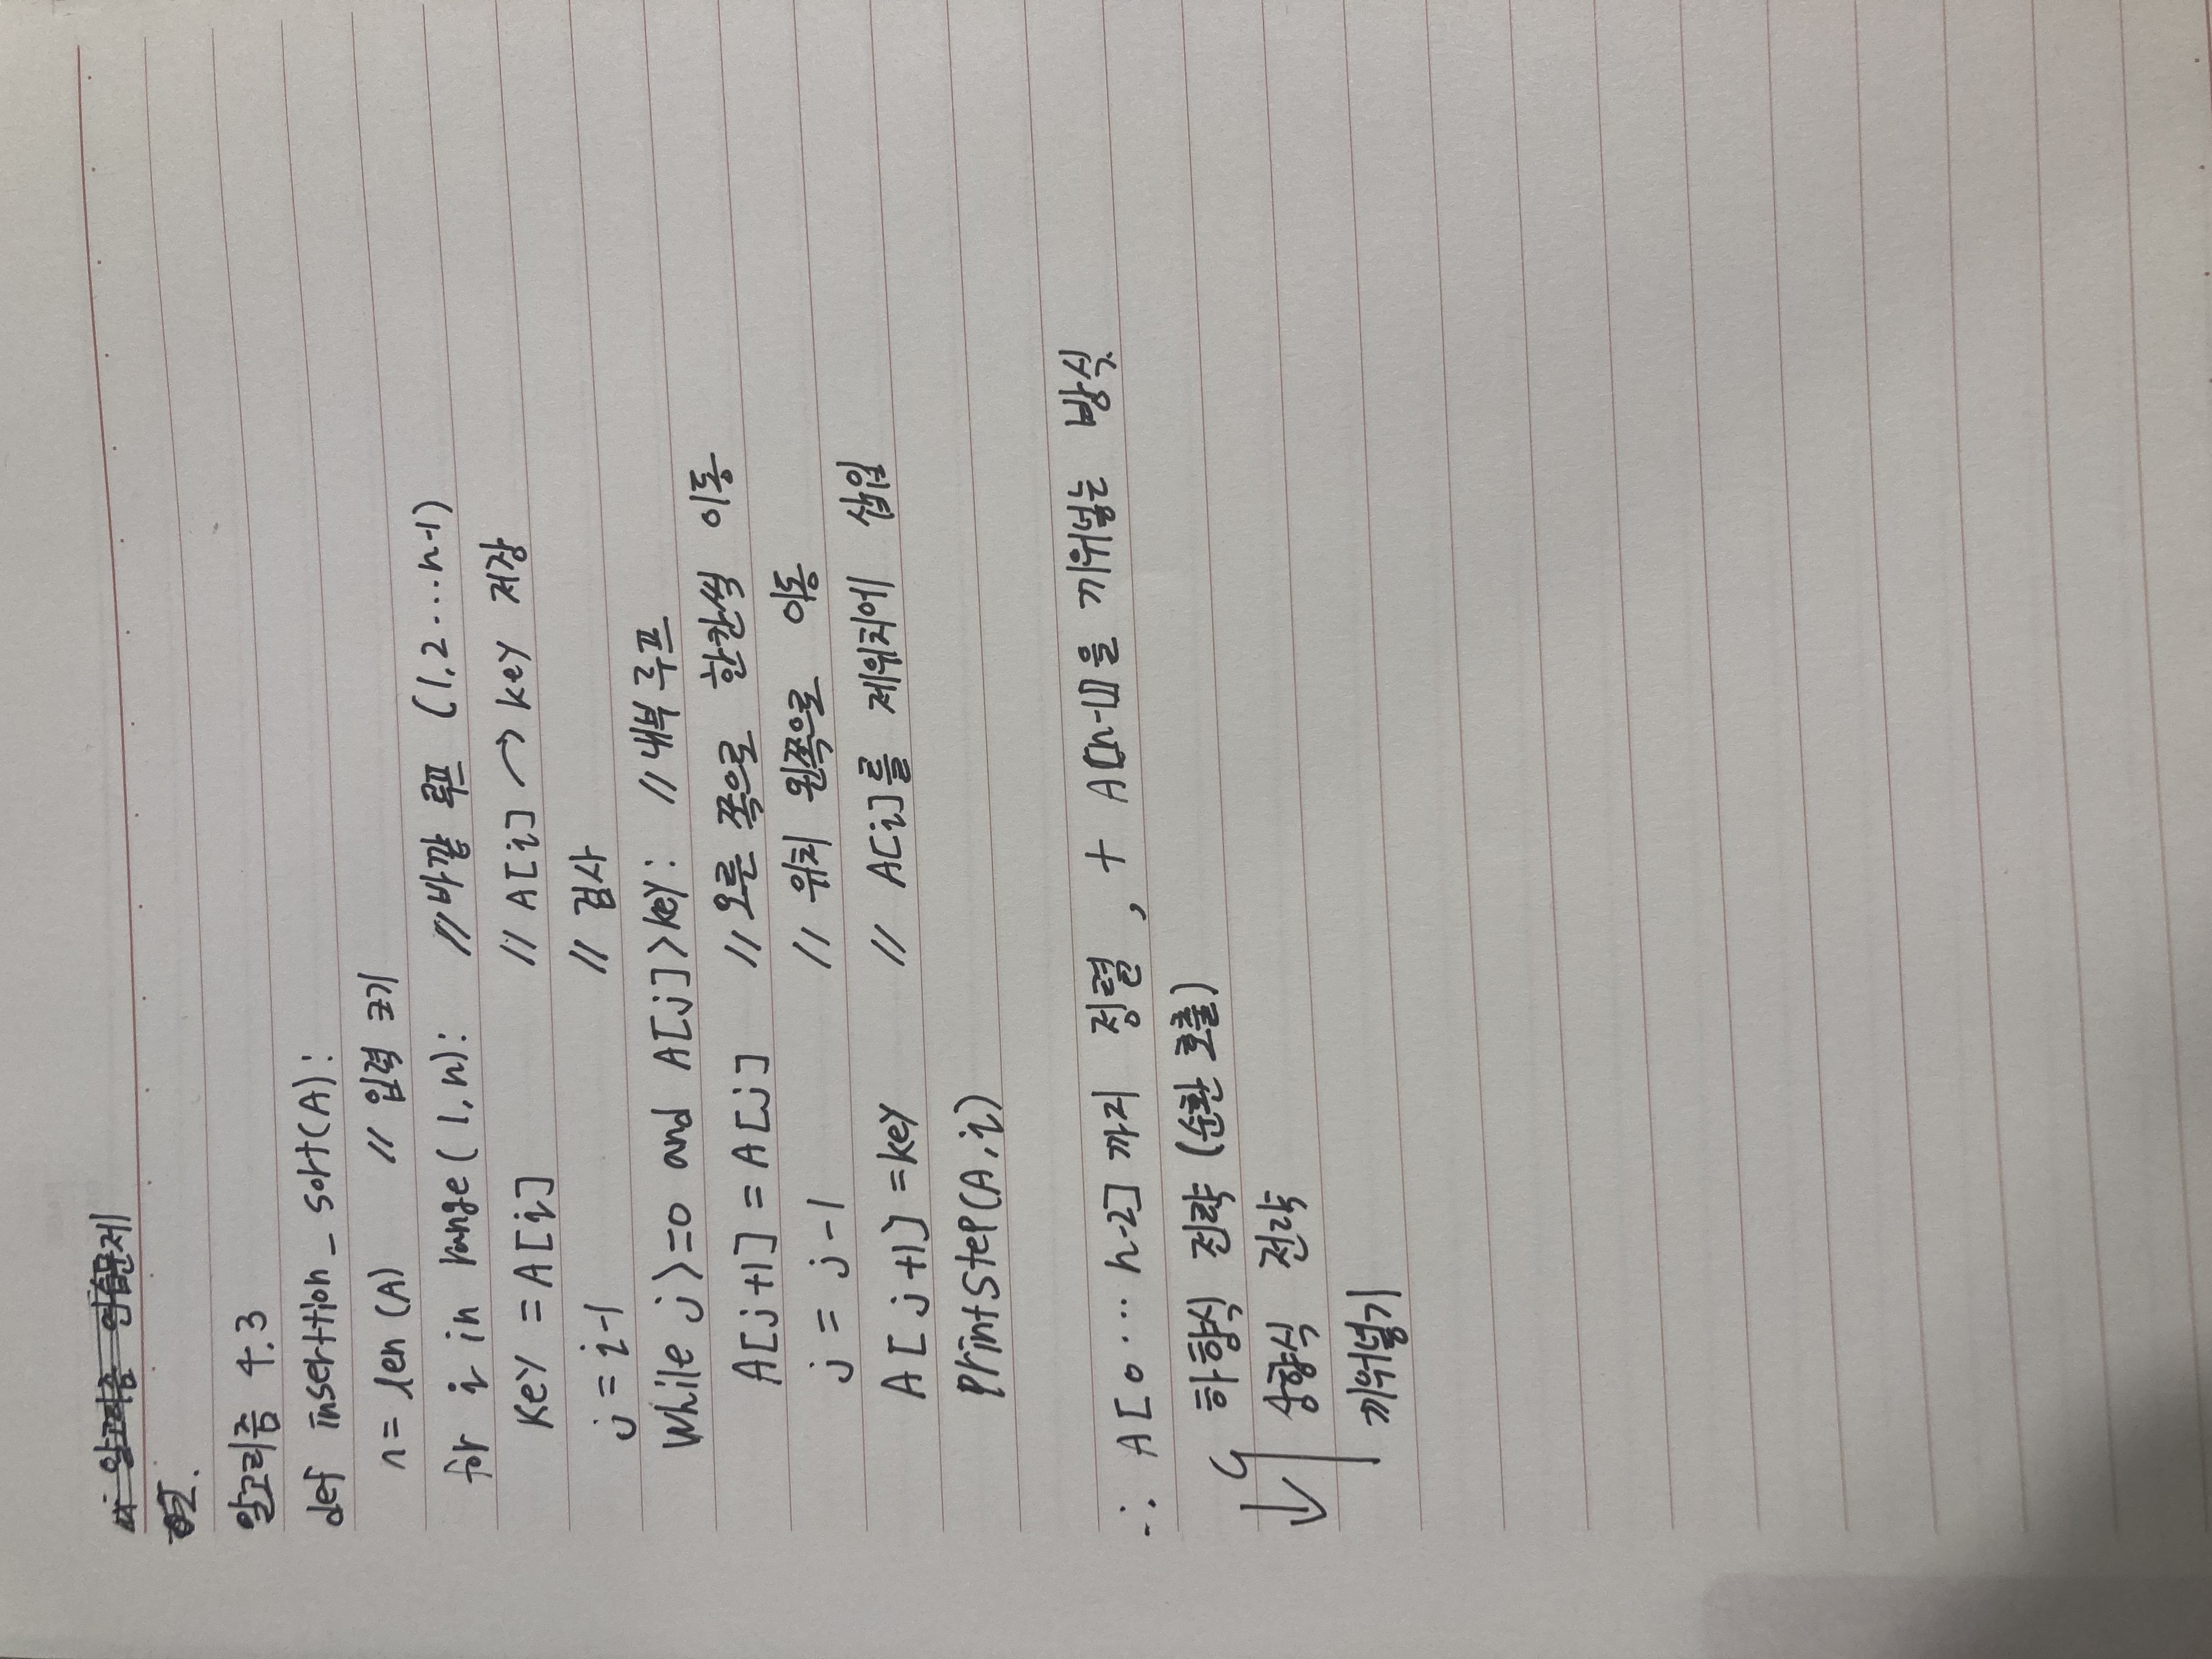 알고리즘 연습문제
알고리즘 4.3
def inserttion_sort(A):
n = len(A) // 입력 크기
for i in range(1,n): // 바깥 루프 (1,2...n-1)
key = A[i] // A[i] → key 저장
j = i-1 // 검사
while j>=0 and A[j]>key: // 내부 루프
A[j+1] = A[j] // 오른 쪽으로 한칸씩 이동
j = j-1 // 위치 왼쪽으로 이동
A[j+1] = key // A[i]를 제위치에 삽입
printstep(A,i)
∴ A[0...n-2] 까지 정렬, + A[n-1]을 끼워넣는 방식
↓ 하향식 전략 (순환 호출)
상향식 전략
끼워넣기